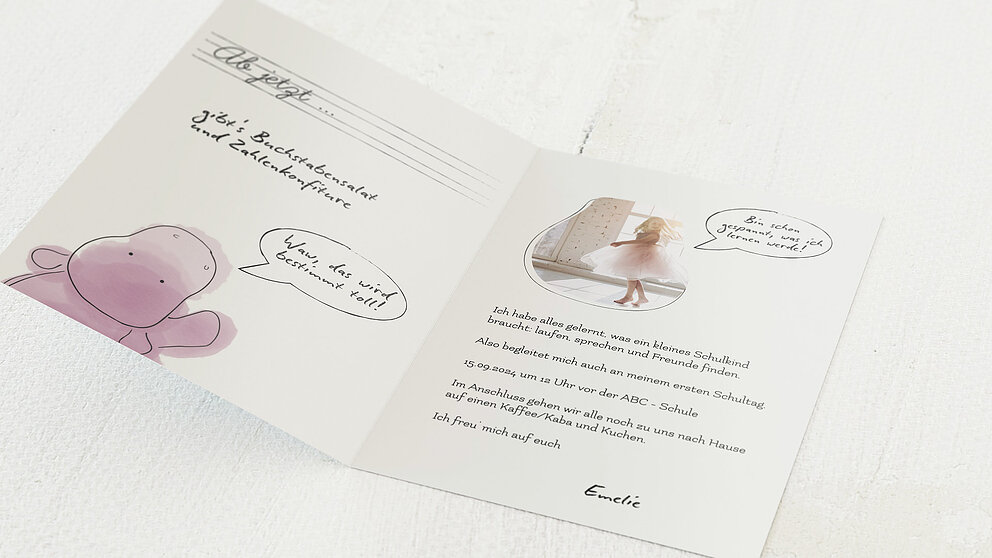 Ab jetzt ...
gibt's Buchstabensalat
und Zahlenkonfitüre
Waw, das wird
bestimmt toll!
Bin schon
gespannt, was ich
lernen werde!
Ich habe alles gelernt, was ein kleines Schulkind
braucht: laufen, sprechen und Freunde finden.
Also begleitet mich auch an meinem ersten Schultag.
15.09.2024 um 12 Uhr vor der ABC - Schule
Im Anschluss gehen wir alle noch zu uns nach Hause
auf einen Kaffee/Kaba und Kuchen.
Ich freu´ mich auf euch
Emelie